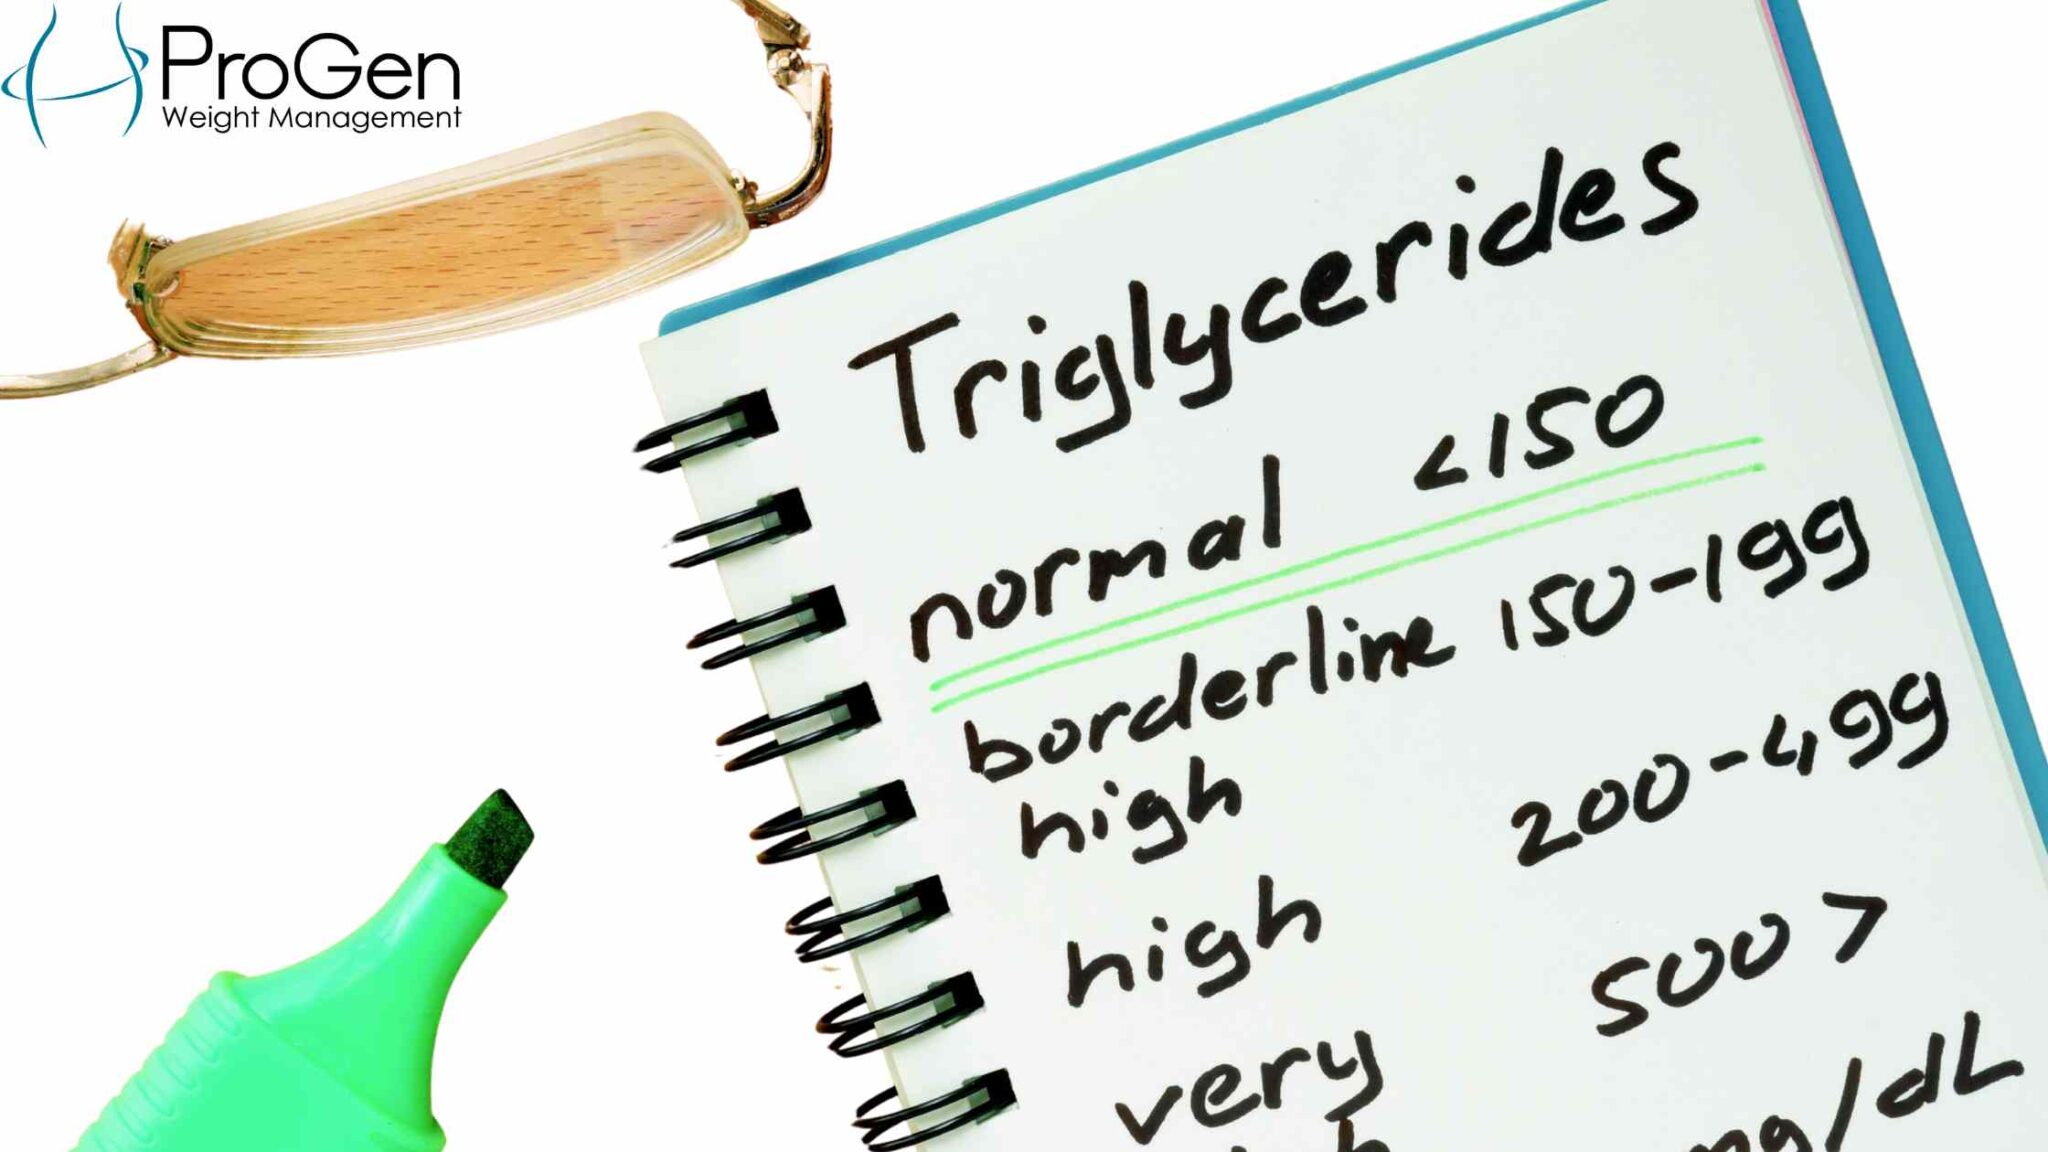 ProGen
Weight Management
Triglycerides
normal <150
borderline 150-199
high
high 200-499
very 500>
mg/dL